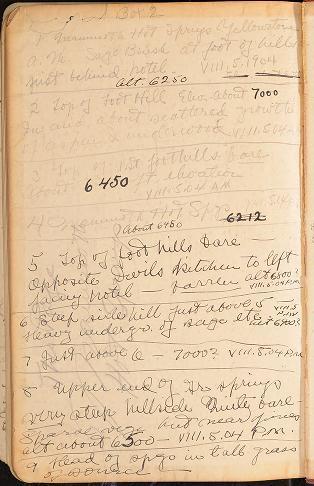 5 Box 2
1 Mammoth Hot Springs Yellowstone
a.m. Sage Brush at foot of hills
just behind hotel. VIII.5.1904
alt. 6250
2 Top of Foot Hill Elev. about 7000
in and about scattered growth
of aspens & underwood VIII.5.04 AM
3 Top of 1st foothills bare
6450
VIII.5.04 AM
4 Mammoth Hot Spgs
about 6450 6212
5 Top of foot hills bare —
opposite Devils Kitchen to left
facing hotel — barren alt 6500?
VIII.5.04 P.M.
6 Steep side hill just above 5 VIII.5
heavy undergro. of sage etc. alt 6700?
7 Just above 6 — 7000? VIII.5.04 P.M.
8 Upper end of Hot springs
very steep hillside quite bare
sparse veg. but near pines
alt about 6500 — VIII.5.04 P.M.
9 Head of spgs in tall grass